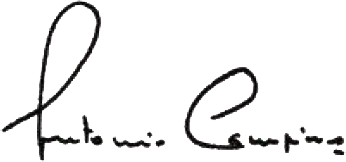 Antonio Campinos